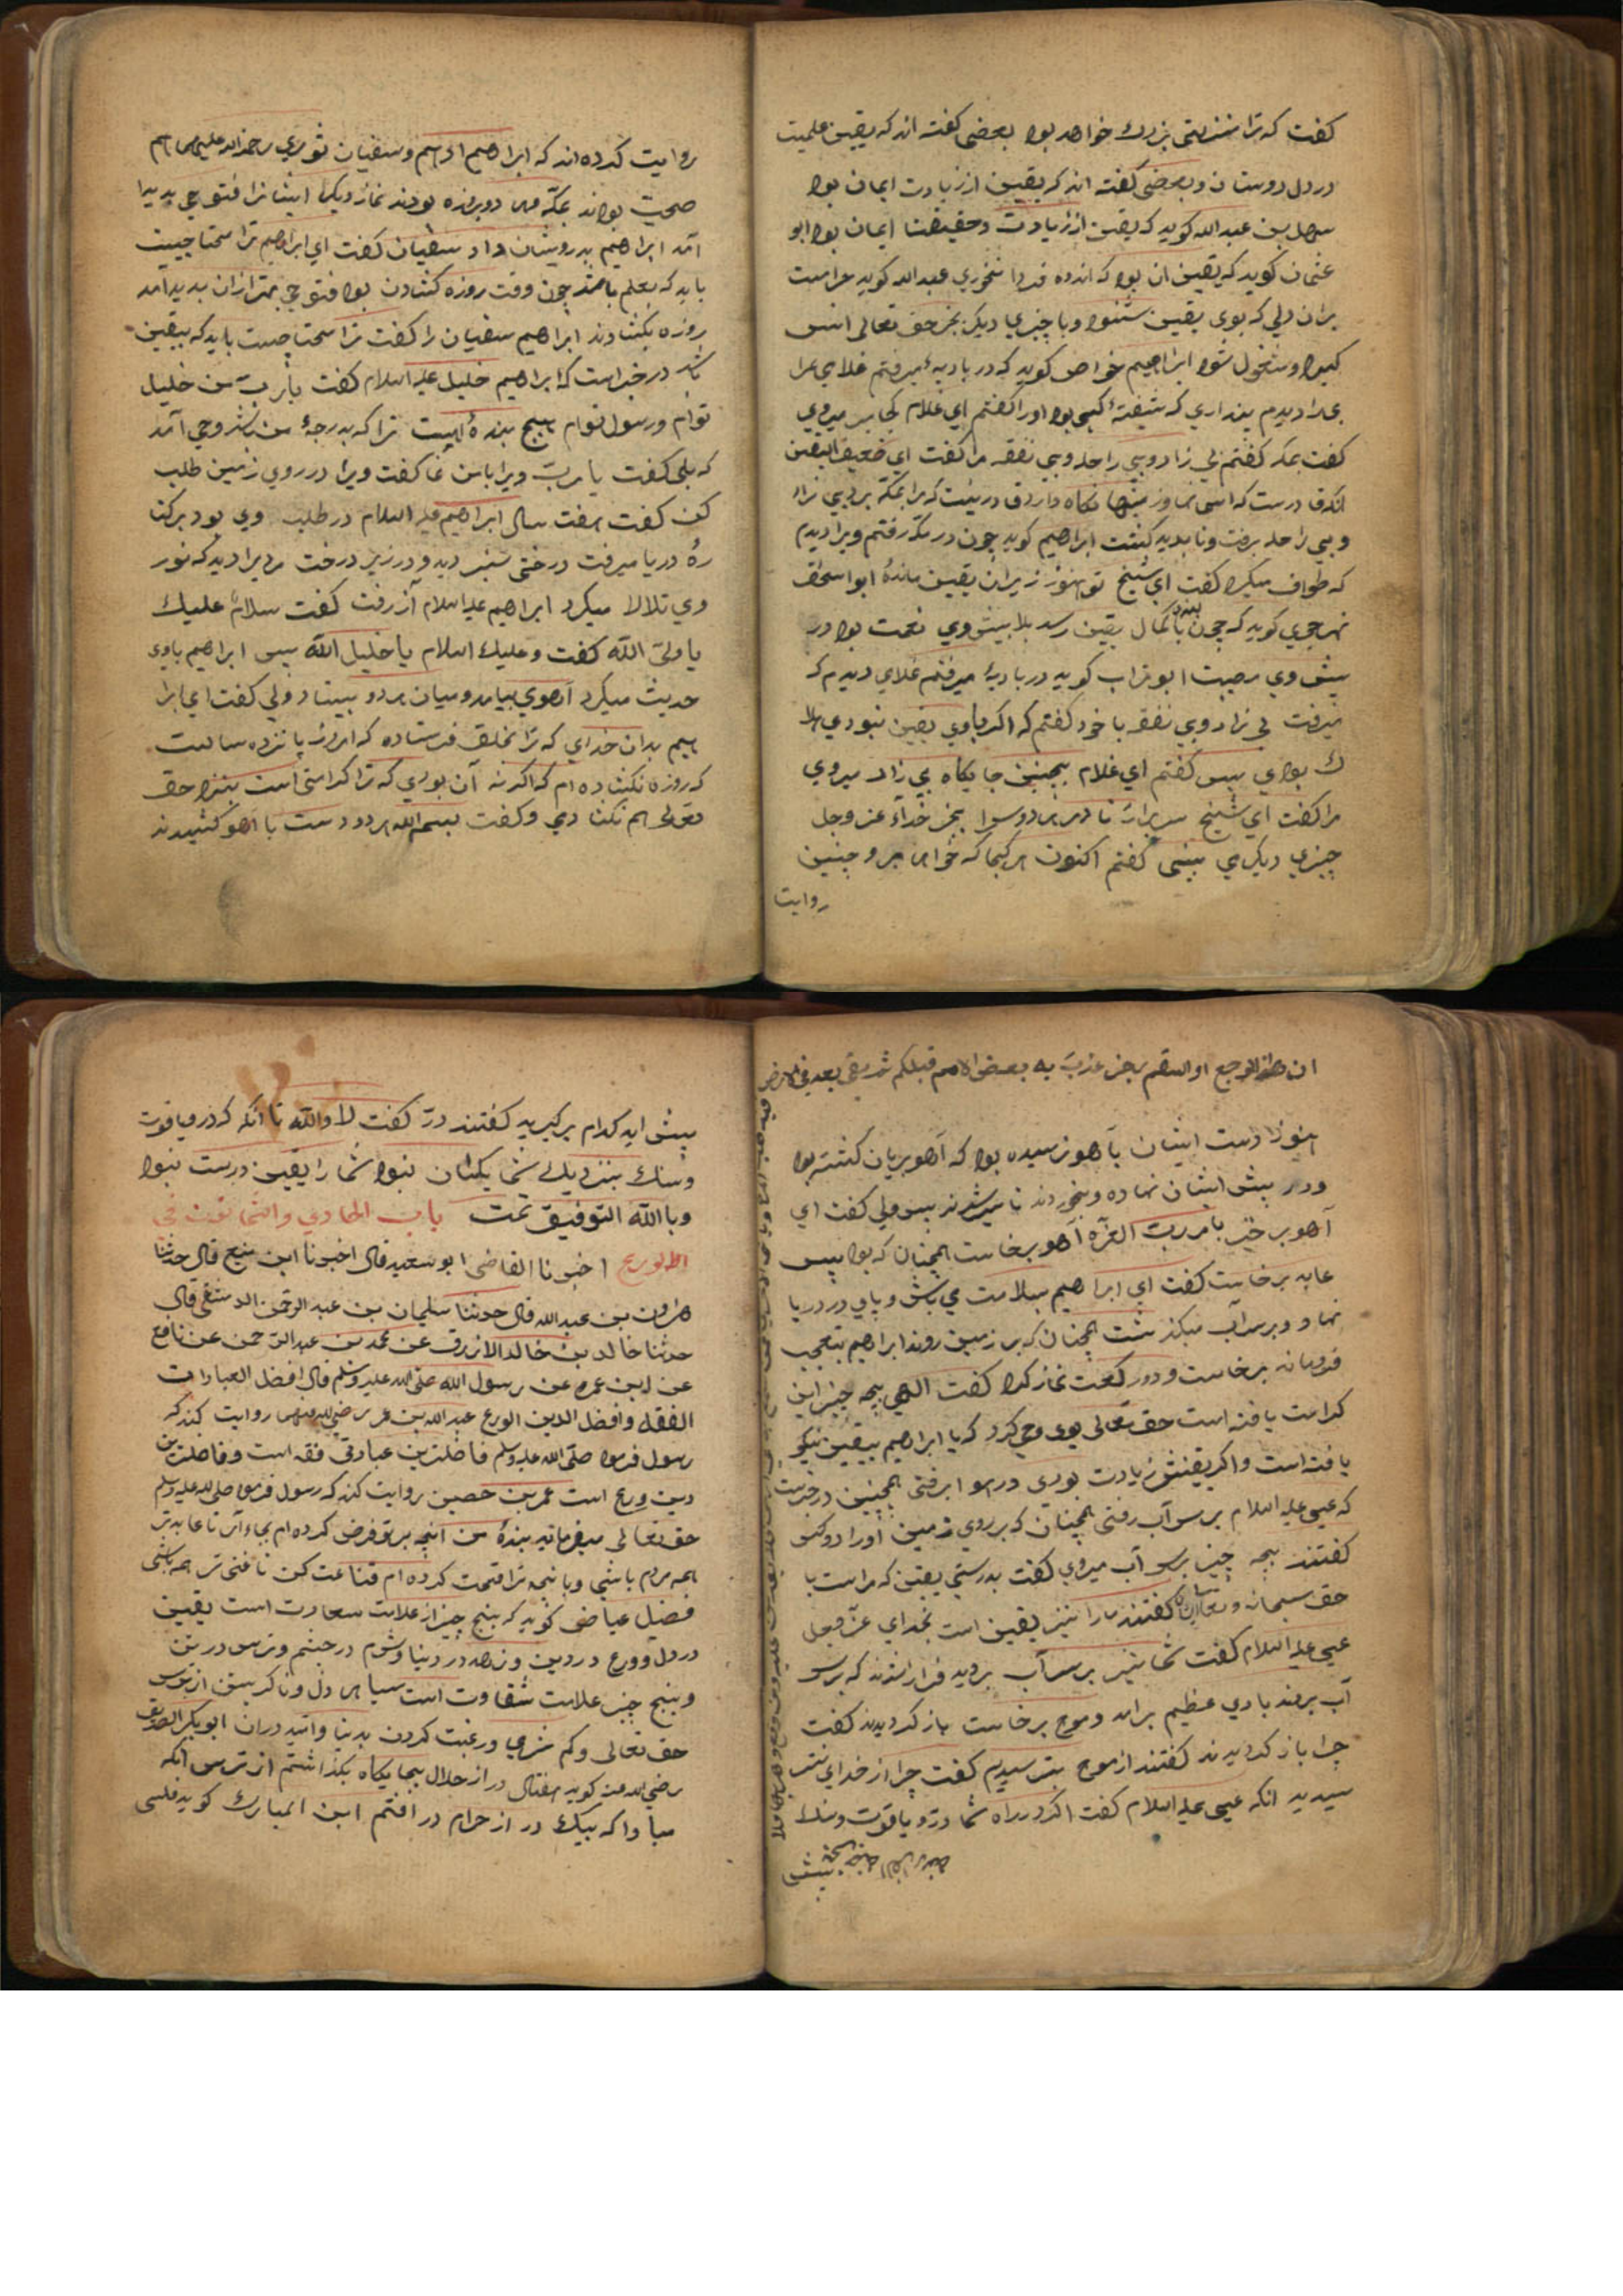 کفت که ترا منزلتی بزرك خواهد بود بعضی کفته اند که یقین علمیت
در دل دوستان و بعضی کفته اند که یقین از زیادت ایمان بود
سهل بن عبد الله کوید که یقین از زیادت و حقیقت ایمان بود ابو
عثمان کوید که یقین ان بود که اندوه فردا نخوری عبد الله کوید حرامست
بران دلی که بوی یقین شنود و با چیزی دیکر بجز حق تعالی انس
کیرد و مشغول شود ابراهیم خواص کوید که در بادیه میرفتم غلامی مرا
دیدم پنداری که شیفته کسی بود اورا کفتم ای غلام کجا میروی
کفت بمکه کفتم بی زاد و بی راحله و بی نفقه مرا کفت ای ضعیف الیقین
انکه قادرست که اسمانها و زمینها نکاه دارد قادر نیست که مرا بمکه برد بی زاد
و بی راحله برفت و ناپدید کشت ابراهیم کوید چون در مکه رفتم ویرا دیدم
که طواف میکرد کفت ای شیخ تو هنوز زیران یقین مانده ابو اسحاق
نهرجوری کوید که چون بنده بکمال یقین رسد بلا پیش وی نعمت بود و ر
پیش وی مصیبت ابو تراب کوید در بادیه میرفتم غلامی دیدم که
میرفت بی زاد و بی نفقه با خود کفتم که اکر باوی یقین نبودی هلا
ك بودی پس کفتم ای غلام بچنین جایکاه بی زاد میروی
مرا کفت ای شیخ سر برار تا در هر دو سرا بجز خدآء عز وجل
چیزی دیکر می بینی کفتم اکنون هر کجا که خواهی برو چنین
روایت
روایت کرده اند که ابراهیم ادهم و سفیان ثوری رحمة الله علیهما باهم
صحبت بودند بمکه هر دو روزه بودند نماز دیکر ایشانرا فتوحی پدید
آمد ابراهیم بدرویشان داد سفیان کفت ای ابراهیم ترا سخا چیست
باید که بعلم باشد چون وقت روزه کشادن بود فتوحی بهتر ازان پدید آمد
روزه بکشادند ابراهیم سفیان را کفت ترا سخا چیست باید که بیقین
باشد در خبر است که ابراهیم خلیل علیه السلام کفت یا رب من خلیل
توام و رسول توام هیچ بنده هست ترا که بدرجهٔ من باشد وحی آمد
که بلی کفت یا رب ویرا بامن نما کفت ویرا در روی زمین طلب
کن کفت هفت سال ابراهیم علیه السلام در طلب وی بود برکنا
رهٔ دریا میرفت درختی سبز دید و در زیر درخت مردیرا دید که نور
وی تلالا میکرد ابراهیم علیه السلام آنجا رفت کفت سلام علیك
یا ولی الله کفت و علیك السلام یا خلیل الله پس ابراهیم باوی
حدیث میکرد آهوی بیامد و میان هر دو بیستاد ولی کفت ای ابرا
هیم بدان خدای که ترا بخلق فرستاده که امروز پانزده سالست
که روزه نکشاده ام که اکر نه آن بودی که ترا کرامتی است بنزد حق
تعالی هم نکشادمی و کفت بسم الله هر دو دست با آهو کشیدند
ان هذا الوجع او السقم رجز عذب به بعض الامم قبلکم ثم بقی بعد فی الارض
هنوز دست ایشان بآهو نرسیده بود که آهو بریان کشته بود
و در پیش ایشان نهاده و بخوردند تا سیر شدند پس ولی کفت ای
آهو برخیز بامر رب العزه آهو برخاست همچنان که بود پس
عابد برخاست کفت ای ابراهیم بسلامت می باش و پای در دریا
نهاد و بر سر آب میکذشت همچنان که بر زمین روند ابراهیم بتعجب
فروماند برخاست و دو رکعت نماز کرد کفت الهی بچه چیز این
کرامت یافته است حق تعالی بوی وحی کرد که یا ابراهیم بیقین نیکو
یافته است و اکر یقینش زیادت بودی در هوا برفتی همچنین در خبرست
که عیسی علیه السلام بر سر آب رفتی همچنان که بر روی زمین اورا دو کس
کفتند بچه چیز بر سر آب میروی کفت بدرستی یقین که مراست با
حق سبحانه و تعالی ایشان کفتند مارا نیز یقین است بخدای عز وجل
عیسی علیه السلام کفت شما نیز بر سر آب بروید فراز امدند که بر سر
آب بروند بادی عظیم برامد و موج برخاست باز کردیدند کفت
چرا باز کردیدند کفتند از موج بترسیدیم کفت چرا از خدای نتر
سیدید انکه عیسی علیه السلام کفت اکر در راه شما در و یاقوت و سنك
پیش
پیش اید کدام برکیرید کفتند در کفت لا والله تا انکه که در و یاقوت
و سنك بنزدیك شما یکسان نبود شما را یقین درست نبود
و باالله التوفیق تمت باب الحادی والثمانون فی
الورع اخبرنا القاضی ابو سعید قال اخبرنا ابن منیع قال حدثنا
هرون بن عبد الله قال حدثنا سلیمان بن عبد الرحمن الدمشقی قال
حدثنا خالد بن خالد الازرق عن محمد بن عبد الرحمن عن نافع
عن ابن عمر عن رسول الله صلی الله علیه وسلم قال افضل العبادات
الفقه و افضل الدین الورع عبد الله بن عمر رضی الله عنهما روایت کند که
رسول فرمود صلی الله علیه وسلم فاضلترین عبادتی فقه است و فاضلترین
دین ورع است عمر بن حصین روایت کند که رسول فرمود صلی الله علیه وسلم
حق تعالی میفرماید بندهٔ من انچه بر تو فرض کرده ام بجاء آر تا عابدتر
همه مردم باشی و بانچه ترا قسمت کرده ام قناعت کن تا غنی تر همه باشی
فضیل عیاض کوید که پنج چیز از علامت سعادت است یقین
در دل و ورع در دین و زهد در دنیا و شرم در چشم و ترس در تن
و پنج چیز علامت شقاوت است سیاهی دل و ناکریستن از ترس
حق تعالی و کم شرمی و رغبت کردن بدنیا و امید دران ابو بکر الصدیق
رضی الله عنه کوید هفتاد در از حلال بجایکاه بکذاشتم از ترس انکه
مبادا که بیك در از حرام در افتم ابن المبارك کوید فلسی